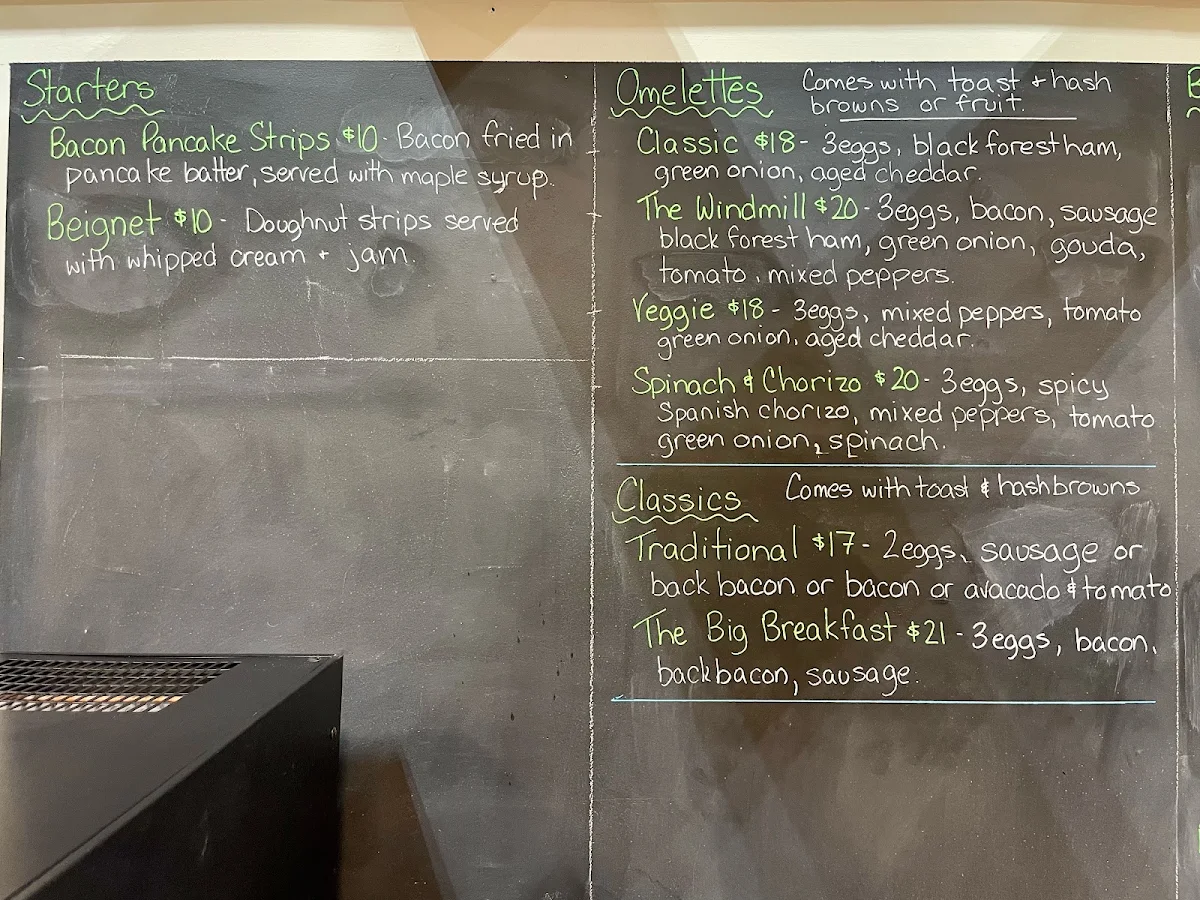 Starters
Bacon Pancake Strips $10 - Bacon fried in
pancake batter, served with maple syrup.
Beignet $10 - Doughnut strips served
with whipped cream + jam.
Omelettes Comes with toast + hash
browns or fruit.
Classic $18 - 3eggs, black forest ham,
green onion, aged cheddar.
The Windmill $20 - 3eggs, bacon, sausage
black forest ham, green onion, gouda,
tomato, mixed peppers.
Veggie $18 - 3eggs, mixed peppers, tomato
green onion, aged cheddar.
Spinach & Chorizo $20 - 3eggs, spicy
Spanish chorizo, mixed peppers, tomato
green onion, spinach.
Classics Comes with toast & hashbrowns
Traditional $17 - 2eggs, sausage or
back bacon or bacon or avacado & tomato
The Big Breakfast $21 - 3eggs, bacon,
backbacon, sausage.